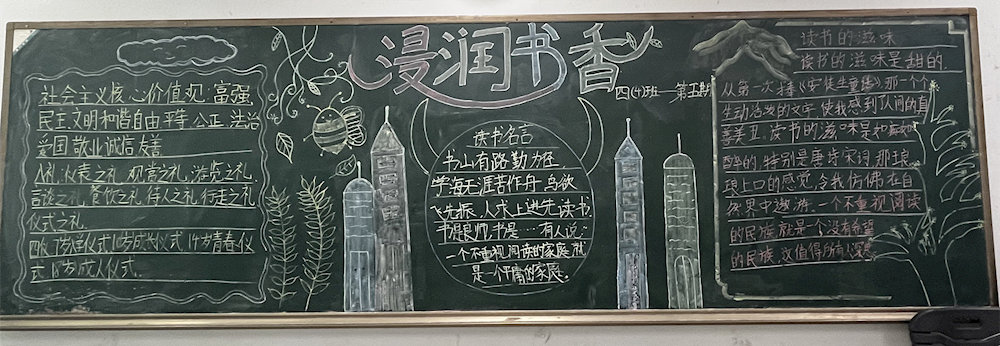 浸润书香
四(4)班——第五期
社会主义核心价值观:富强
民主文明和谐自由平等公正法治
爱国敬业诚信友善
八礼:仪表之礼,观赏之礼,游览之礼,
言谈之礼,餐饮之礼,待人之礼,行走之礼
仪式之礼
四仪:7岁仪式10岁成长仪式14岁青春仪
式18岁成人仪式.
读书名言
书山有路勤为径,
学海无涯苦作舟,鸟欲
飞先振,人求上进先读书,
书是良师,书是……有人说:
一个不重视阅读的家庭,就
是一个平庸的家庭。
读书的滋味
读书的滋味是甜的.
从第一次捧《安徒生童话》,那一个个
生动活泼的文字,使我感到人间的真
善美丑。读书的滋味是如痴如
醉的,特别是唐诗宋词,那琅
琅上口的感觉,令我仿佛在自
然界中遨游,一个不重视阅读
的民族,就是一个没有希望
的民族,这值得所有人深